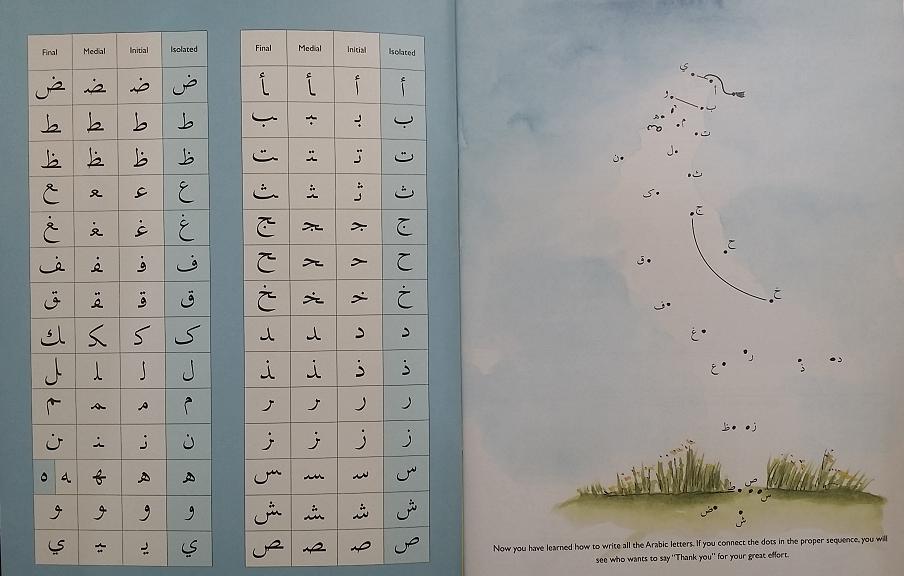 Final Medial Initial Isolated
ـض ـضـ ضـ ض
ـط ـطـ طـ ط
ـظ ـظـ ظـ ظ
ـع ـعـ عـ ع
ـغ ـغـ غـ غ
ـف ـفـ فـ ف
ـق ـقـ قـ ق
ـك ـكـ كـ ک
ـل ـلـ لـ ل
ـم ـمـ مـ م
ـن ـنـ نـ ن
ه ـه ـهـ هـ ه
و و و و
ـي ـيـ يـ ي
Final Medial Initial Isolated
ـأ ـأ أ أ
ـب ـبـ بـ ب
ـت ـتـ تـ ت
ـث ـثـ ثـ ث
ـج ـجـ جـ ج
ـح ـحـ حـ ح
ـخ ـخـ خـ خ
ـد ـد د د
ـذ ـذ ذ ذ
ـر ـر ر ر
ـز ـز ز ز
ـس ـسـ سـ س
ـش ـشـ شـ ش
ـص ـصـ صـ ص
ي
أ
و
ب
ه
م
ت
ن
ل
ث
ک
ج
ح
ق
خ
ف
غ
ر
د
ع
ذ
ظ
ز
ط
ص
س
ض
ش
Now you have learned how to write all the Arabic letters. If you connect the dots in the proper sequence, you will
see who wants to say "Thank you" for your great effort.